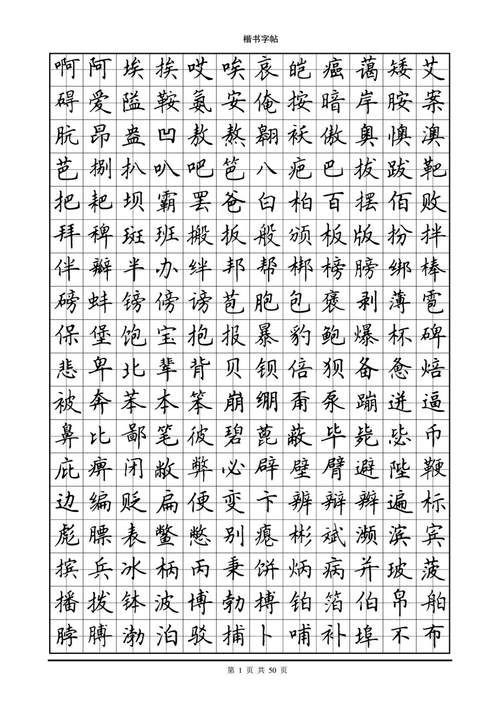 楷书字帖
啊阿埃挨哎唉哀皑癌蔼矮艾
碍爱隘鞍氨安俺按暗岸胺案
肮昂盎凹敖熬翱袄傲奥懊澳
芭捌扒叭吧笆八疤巴拔跋靶
把耙坝霸罢爸白柏百摆佰败
拜稗斑班搬扳般颁板版扮拌
伴瓣半办绊邦帮梆榜膀绑棒
磅蚌镑傍谤苞胞包褒剥薄雹
保堡饱宝抱报暴豹鲍爆杯碑
悲卑北辈背贝钡倍狈备惫焙
被奔苯本笨崩绷甭泵蹦迸逼
鼻比鄙笔彼碧蓖蔽毕毙毖币
庇痹闭敝弊必辟壁臂避陛鞭
边编贬扁便变卞辨辩辫遍标
彪膘表鳖憋别瘪彬斌濒滨宾
摈兵冰柄丙秉饼炳病并玻菠
播拨钵波博勃搏铂箔伯帛舶
脖膊渤泊驳捕卜哺补埠不布
第 1 页 共 50 页